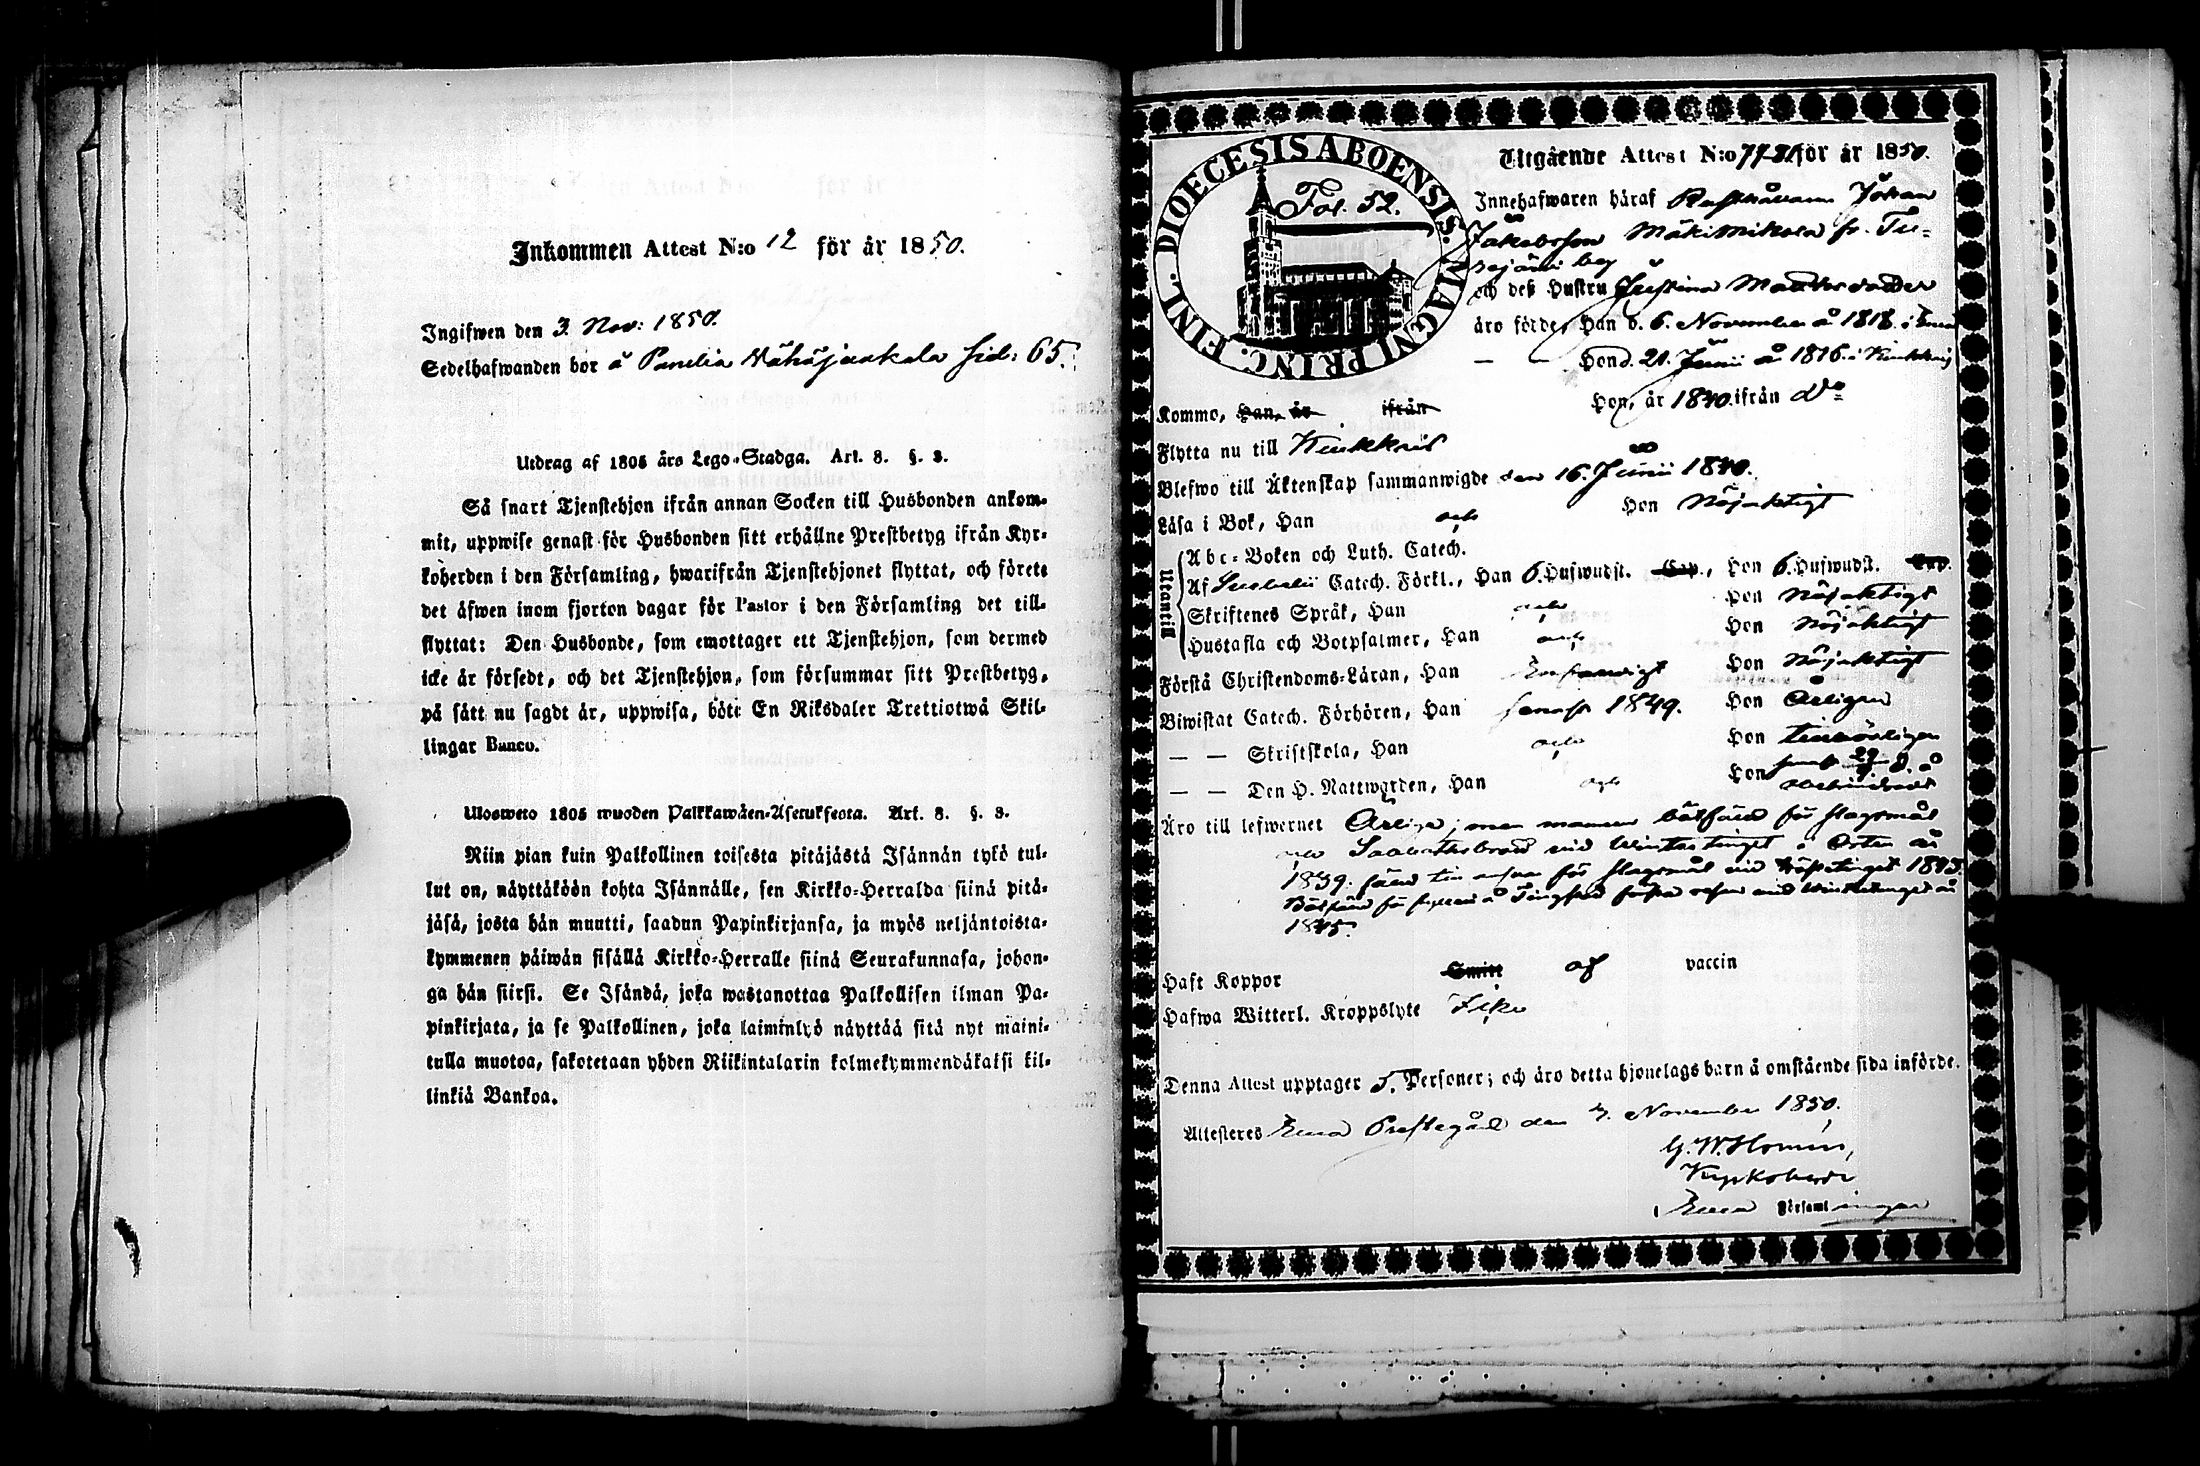 Inkommen Attest N:o 12 för år 1850.
Ingifwen den 3 Nov: 1850.
Sedelhafwanden bor å Panelia Vähäjaakala sid: 65.
Utdrag af 1805 års Lego-Stadga. Art. 8. §. 3.
Så snart Tjenstehjon ifrån annan Socken till Husbonden ankom-
mit, uppwise genast för Husbonden sitt erhållne Prestbetyg ifrån Kyr-
koherden i den Församling, hwarifrån Tjenstehjonet flyttat, och förete
det äfwen inom fjorton dagar för Pastor i den Församling det till-
flyttat: Den Husbonde, som emottager ett Tjenstehjon, som dermed
icke är försedt, och det Tjenstehjon, som försummar sitt Prestbetyg,
på sätt nu sagdt är, uppwisa, böte En Riksdaler Trettiotwå Skil-
lingar Banco.
Ulosweto 1805 wuoden Palkkawäen-Asetuksesta. Art. 8. §. 3.
Niin pian kuin Palkollinen toisesta pitäjästä Isännän tykö tul-
lut on, näyttäköön kohta Isännälle, sen Kirkko-Herralda siinä pitä-
jäsä, josta hän muutti, saadun Papinkirjansa, ja myös neljäntoista-
kymmenen päiwän sisällä Kirkko-Herralle siinä Seurakunnasa, johon-
ga hän siirsi. Se Isändä, joka wastanottaa Palkollisen ilman Pa-
pinkirjata, ja se Palkollinen, joka laiminlyö näyttää sitä nyt maini-
tulla muotoa, sakotetaan yhden Riikintalarin kolmekymmendäkaksi kil-
linkiä Bankoa.
DIOECESIS ABOENSIS. MAGNI PRINC. FINL.
Fol. 52.
Utgående Attest N:o 77-81 för år 1850.
Innehafwaren häraf Johan
Jakobsson Mäkimikola fr. Tu-
rajärvi by
och deß Hustru Justina Mattsdotter
äro födde, Han d. 6. November å 1818. i Eura
— — Hon d. 21. Junii å 1816. i Kiukkais
Komne, Han, år ifrån Hon, år 1840. ifrån do
Flytta nu till Kiukkais
Blefwo till Äktenskap sammanwigde den 16. Junii 1840.
Läsa i Bok, Han och Hon Nöjaktigt
Utantill
Abc-Boken och Luth. Catech.
Af Svebelii Catech. Förkl., Han 6. Hufwudst. Cap., Hon 6. Hufwudst. Cap.
Skriftenes Språk, Han och Hon Nöjaktigt
Hustafla och Botpsalmer, Han och Hon Nöjaktigt
Förstå Christendoms-Läran, Han Hon Nöjaktigt
Biwistat Catech. Förhören, Han senast 1849. Hon Årligen
— — Skriftskola, Han och Hon
— — Den H. Nattwarden, Han och Hon senast
Äro till lefwernet Ärliga; men mannen bötfäld för slagsmål
och Sabbathsbrott vid Wintertinget i Orten år
1839. fäld till ansvar för slagsmål vid Hösttinget 1843.
Bötfäld för å Tingsted vid Wintertinget år
1845.
Haft Koppor Smitt af vaccin
Hafwa Witterl. Kroppslyte Icke
Denna Attest upptager 5. Personer; och äro detta hjonelags barn å omstående sida införde.
Attesteres Eura Prestegård den November 1850.
Kyrkoherde
i Eura Församlingar